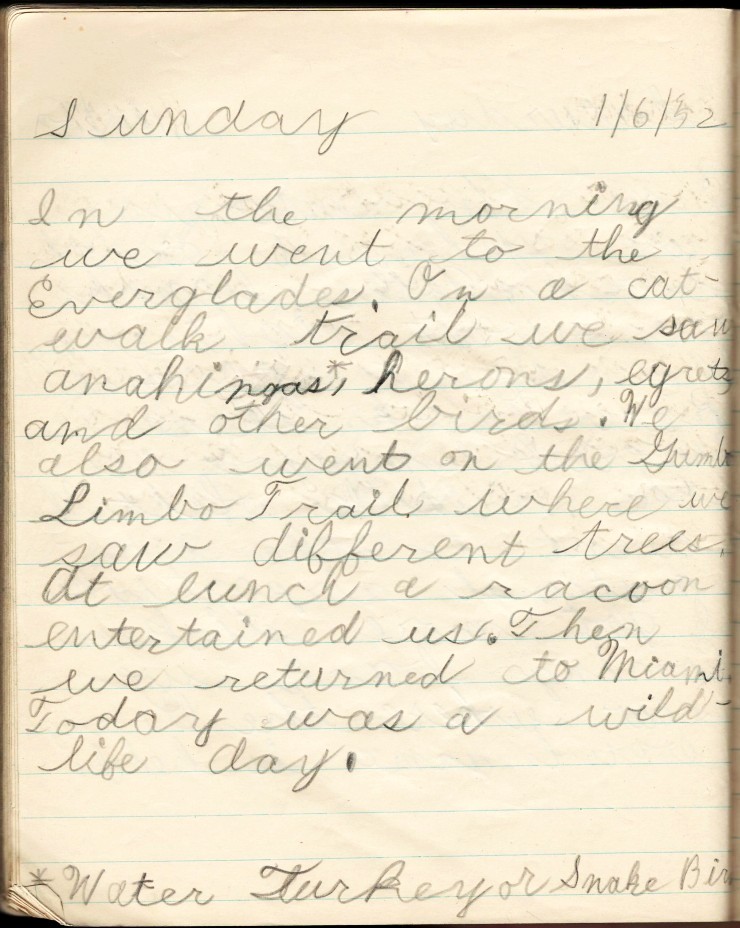 Sunday 1/6/52
In the morning
we went to the
Everglades. On a cat-
walk trail we saw
anahingas*, herons, egrets,
and other birds. We
also went on the Gumbo
Limbo Trail where we
saw different trees.
At lunch a racoon
entertained us. Then
we returned to Miami.
Today was a wild-
life day.
* Water Turkey or Snake Bird